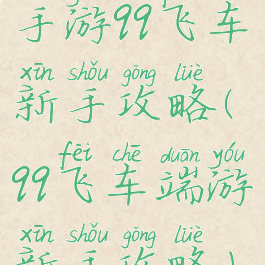 手游99飞车
xīn shǒu gōng lüè
新手攻略(
fēi chē duān yóu
99飞车端游
xīn shǒu gōng lüè
新手攻略)